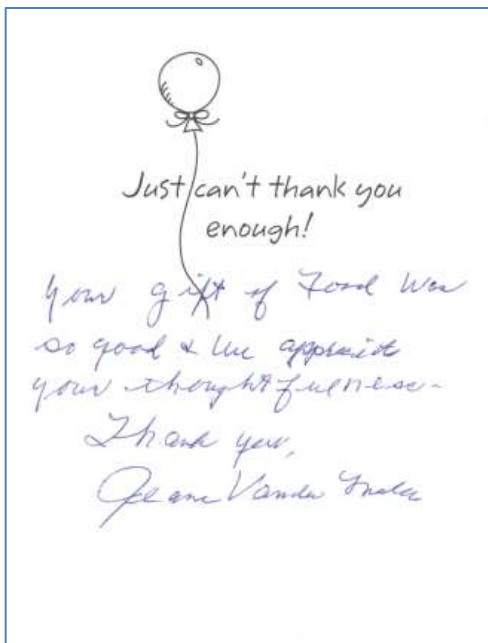 Just can't thank you
enough!
Your gift of Food Was
so good & We appreciate
your thoughtfulness-
Thank you,
Jeane Vander